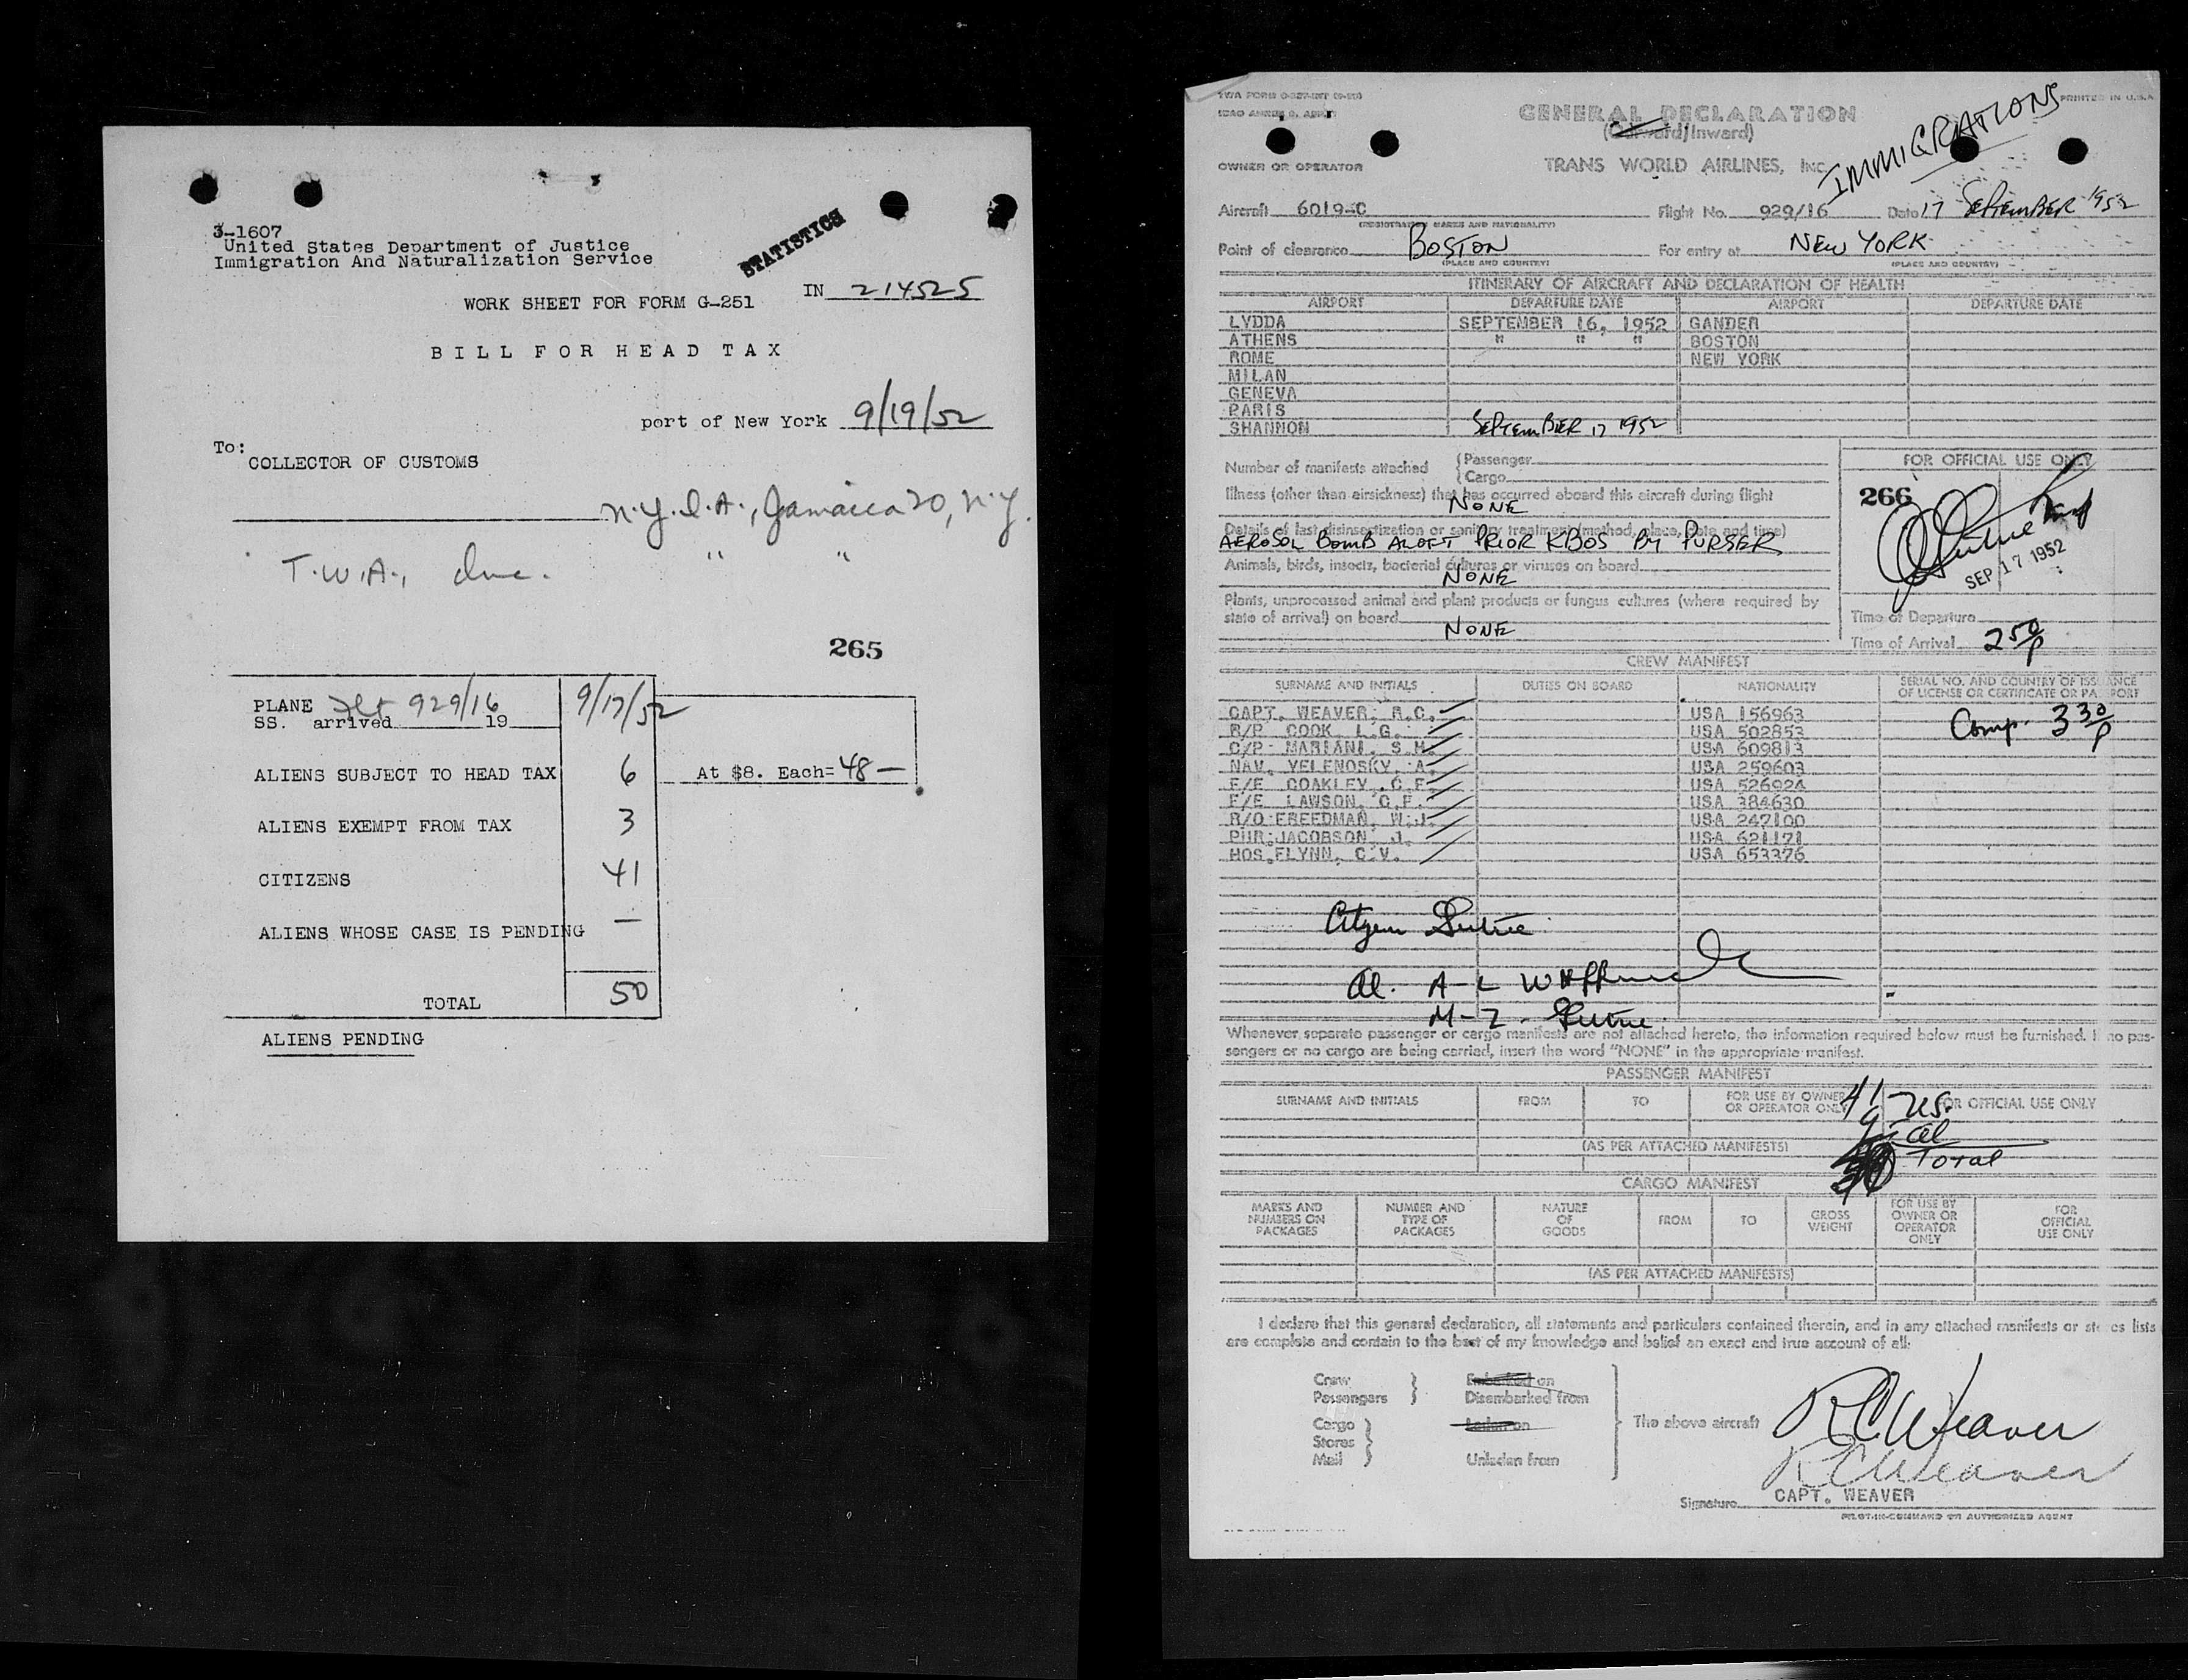 3-1607
United States Department of Justice
Immigration And Naturalization Service
STATISTICS
IN 214525
WORK SHEET FOR FORM G-251
BILL FOR HEAD TAX
port of New York 9/19/52
To:
COLLECTOR OF CUSTOMS
N.Y.I.A., Jamaica 20, N.Y.
T.W.A., Inc. " "
265
PLANE Flt 929/16 9/17/52
SS. arrived 19
ALIENS SUBJECT TO HEAD TAX 6 At $8. Each= 48 —
ALIENS EXEMPT FROM TAX 3
CITIZENS 41
ALIENS WHOSE CASE IS PENDING —
TOTAL 50
ALIENS PENDING
PRINTED IN U.S.A.
GENERAL DECLARATION
(Outward/Inward)
IMMIGRATIONS
OWNER OR OPERATOR TRANS WORLD AIRLINES, INC.
Aircraft 6019-C Flight No. 929/16 Date 17 SEPTEMBER 1952
(REGISTRATION MARKS AND NATIONALITY)
Point of clearance BOSTON For entry at NEW YORK
(PLACE AND COUNTRY) (PLACE AND COUNTRY)
ITINERARY OF AIRCRAFT AND DECLARATION OF HEALTH
AIRPORT DEPARTURE DATE AIRPORT DEPARTURE DATE
LYDDA SEPTEMBER 16, 1952 GANDER
ATHENS " " " BOSTON
ROME NEW YORK
MILAN
GENEVA
PARIS
SHANNON SEPTEMBER 17 1952
Number of manifests attached { Passenger
{ Cargo
Illness (other than airsickness) that has occurred aboard this aircraft during flight
NONE
Details of last disinsectization or sanitary treatment (method, place, date and time)
AEROSOL BOMB ALOFT PRIOR KBOS BY PURSER
Animals, birds, insects, bacterial cultures or viruses on board
NONE
Plants, unprocessed animal and plant products or fungus cultures (where required by
state of arrival) on board
NONE
FOR OFFICIAL USE ONLY
266
SEP 17 1952
Time of Departure
Time of Arrival 2 50 P
CREW MANIFEST
SURNAME AND INITIALS DUTIES ON BOARD NATIONALITY SERIAL NO. AND COUNTRY OF ISSUANCE
OF LICENSE OR CERTIFICATE OR PASSPORT
CAPT. WEAVER, R.C. USA 156963
R/P COOK L.G. USA 502853
C/P MARIANI, S.M. USA 609813
NAV. YELENOSKY, A. USA 259603
F/E COAKLEY, C.F. USA 526924
F/E LAWSON, C.F. USA 384630
R/O FREEDMAN, W.J. USA 247100
PUR JACOBSON, J. USA 621171
HOS. FLYNN, C.V. USA 653376
Comp. 3 30 P
Citizen
Al. A-L
M-Z
Whenever separate passenger or cargo manifests are not attached hereto, the information required below must be furnished. If no pas-
sengers or no cargo are being carried, insert the word "NONE" in the appropriate manifest.
PASSENGER MANIFEST
SURNAME AND INITIALS FROM TO FOR USE BY OWNER
OR OPERATOR ONLY FOR OFFICIAL USE ONLY
41 US.
9 al
50 Total
(AS PER ATTACHED MANIFESTS)
CARGO MANIFEST
MARKS AND
NUMBERS ON
PACKAGES
NUMBER AND
TYPE OF
PACKAGES
NATURE
OF
GOODS
FROM
TO
GROSS
WEIGHT
FOR USE BY
OWNER OR
OPERATOR
ONLY
FOR
OFFICIAL
USE ONLY
(AS PER ATTACHED MANIFESTS)
I declare that this general declaration, all statements and particulars contained therein, and in any attached manifests or stores lists
are complete and contain to the best of my knowledge and belief an exact and true account of all:
Crew
Passengers
Embarked on
Disembarked from
Cargo
Stores
Mail
Laden on
Unladen from
The above aircraft
RC Weaver
RC Weaver
Signature CAPT. WEAVER
PILOT-IN-COMMAND OR AUTHORIZED AGENT